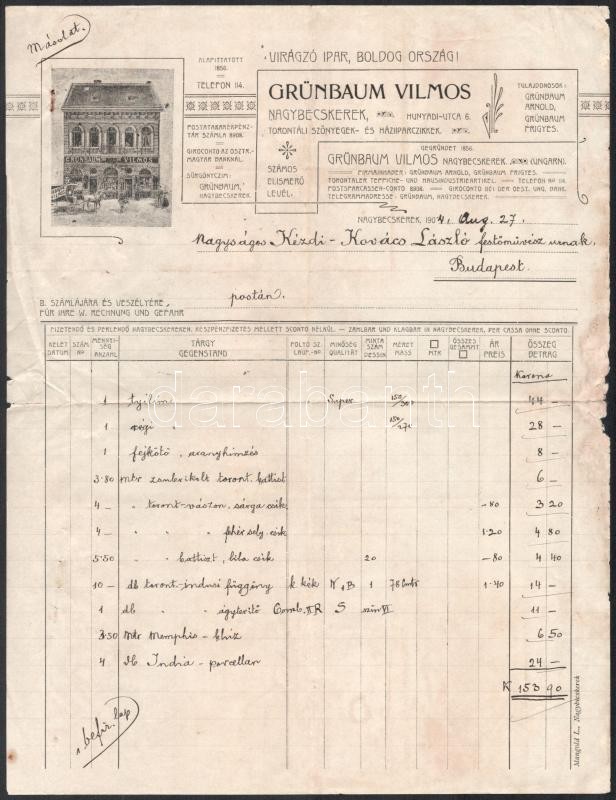 Másolat.
VIRÁGZÓ IPAR, BOLDOG ORSZÁG!
ALAPITTATOTT
1856.
TELEFON 114.
POSTATAKARÉKPÉNZ-
TÁR SZÁMLA 8908.
GIROCONTO AZ OSZTR.-
MAGYAR BANKNÁL.
SÜRGÖNYCZIM:
„GRÜNBAUM,“
NAGYBECSKEREK.
GRÜNBAUM VILMOS
NAGYBECSKEREK, HUNYADI-UTCA 6.
TORONTÁLI SZŐNYEGEK- ÉS HÁZIIPARCZIKKEK.
TULAJDONOSOK:
GRÜNBAUM
ARNOLD,
GRÜNBAUM
FRIGYES.
SZÁMOS
ELISMERŐ
LEVÉL.
GEGRÜNDET 1856.
GRÜNBAUM VILMOS NAGYBECSKEREK, (UNGARN).
FIRMAINHABER: GRÜNBAUM ARNOLD, GRÜNBAUM FRIGYES.
TORONTALER TEPPICHE- UND HAUSINDUSTRIEARTIKEL. TELEFON No 114.
POSTSPARCASSEN-CONTO 8908. GIROCONTO BEI DER OEST. UNG. BANK.
TELEGRAMMADRESSE: GRÜNBAUM, NAGYBECSKEREK.
GRÜNBAUM VILMOS
NAGYBECSKEREK, 1904. Aug. 27.
Nagyságos Kézdi-Kovács László festőművész urnak,
Budapest.
B. SZÁMLÁJÁRA ÉS VESZÉLYÉRE, postán.
FÜR IHRE W. RECHNUNG UND GEFAHR
FIZETENDŐ ÉS PERLENDŐ NAGYBECSKEREKEN. KÉSZPÉNZFIZETÉS MELLETT SCONTO NÉLKÜL. — ZAHLBAR UND KLAGBAR IN NAGYBECSKEREK, PER CASSA OHNE SCONTO.
KELET DATUM SZÁM No MENNYISÉG ANZAHL TÁRGY GEGENSTAND FOLYÓ SZ. LAUF.-No MINŐSÉG QUALITÄT MINTA SZÁM DESSIN MÉRET MASS MTR ÖSSZES GESAMMT ÁR PREIS ÖSSZEG BETRAG
Korona
1 Super 150/300 44 —
1 régi " 28 —
1 fejkötő, aranyhimzés 8 —
3.80 mtr toront. battist 6 —
4 — " toront-vászon, sárga csik —80 3 20
4 — " " " fehér sely. csik 1.20 4 80
5.50 " " battiszt, lila csik 20 —80 4 40
10 — db toront-indusi függöny k kék 1 78 1.40 14 —
1 db " " ágyterítő II R S szin VI 11 —
3.50 Mtr Memphis- 6 50
4 db India - porcellan 24 —
K 153 90
Mangold L., Nagybecskerek
darabanth